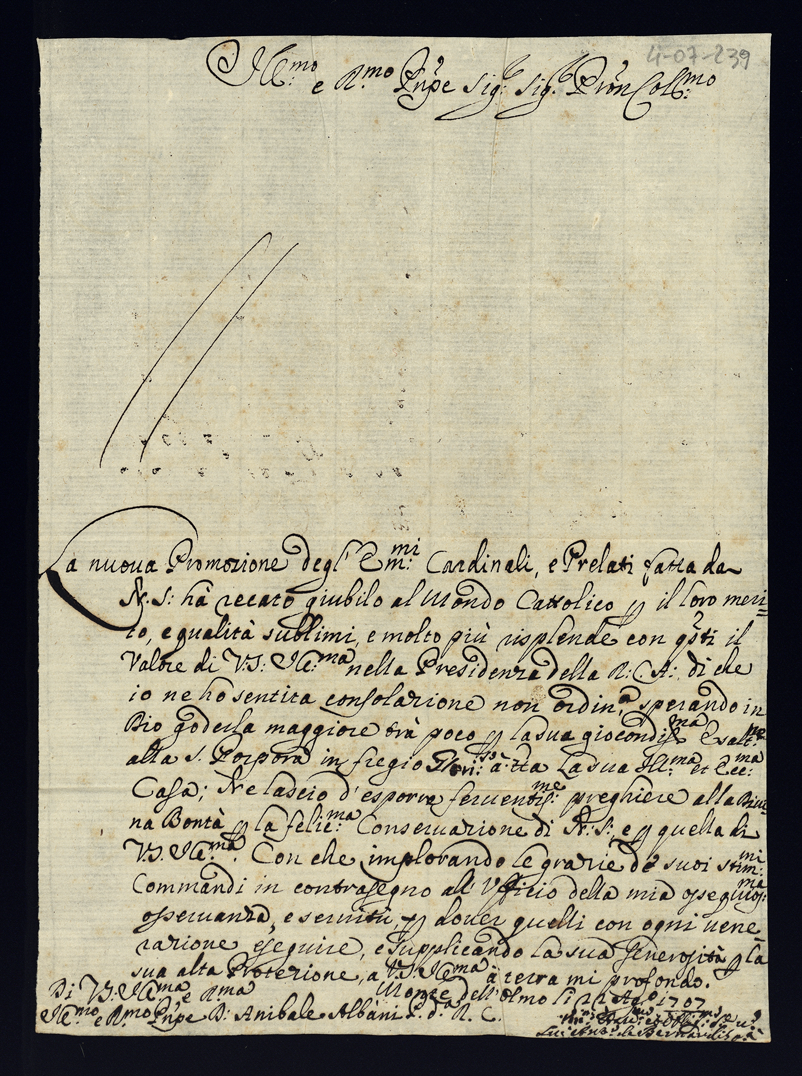 4-07-239
Ill:mo e R.mo Pnpe Sig.r Sig.r Pron Coll:mo
La nuova Promozione degl' Em:mi Cardinali, e Prelati fatta da
N. S: hà recato giubilo al Mondo Cattolico p il loro meri=
to, e qualità sublimi, e molto più risplende con qsti il
Valore di VS: Ill:ma nella Presidenza della R: C. A: di che
io ne ho sentita consolazione non ordin.a sperando in
Dio goderla maggiore frà poco p la sua giocondiss.ma Esalt:ne
alla S. Porpora in fregio Glori:so à tta la sua Ill:ma et Ecc:ma
Casa; Ne lascio d'esporre ferventis:me preghiere alla Divi=
na Bontà p la felic:ma Conservazione di N: S:, e p quella di
VS. Ill:ma. Con che implorando le grazie de suoi stim:mi
Commandi in contrasegno all' Ufficio della mia ossequios:ma
osservanza, e servitù, p dover quelli con ogni vene=
razione eseguire, e supplicando la sua Generosità p la
sua alta Protezione, a VS: Ill:ma à terra mi profondo.
Di VS: Ill:ma e R.ma
Monte dell' Olmo li Ag.o 1707
Ill:mo e R:mo Pnpe D: Anibale Albani P. d.a R. C.